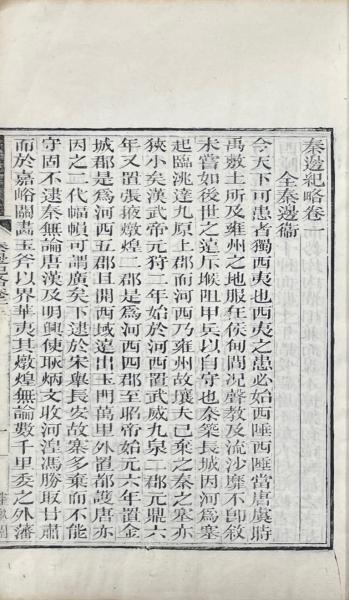 秦邊紀略卷一
全秦邊衛
今天下可患者獨西夷也西夷之患必始西陲西陲當唐虞時
禹敷土所及雍州之地服在侯甸間况聲教及流沙靡不即敘
未嘗如後世之遠斥堠阻甲兵以自守也秦築長城因河爲塞
起臨洮達九原上郡而河西乃雍州故壤夫已棄之秦之塞亦
狹小矣漢武帝元狩二年始於河西置武威九泉二郡元鼎六
年又置張掖燉煌二郡是爲河西四郡至昭帝始元六年置金
城郡是爲河西五郡且開西域遠出玉門萬里外置都護唐亦
因之二代幅幀可謂廣矣下逮於宋舉長安故塞多棄而不能
守固不逮秦無論唐漢及明興使耿炳文收河湟馮勝取甘肅
而於嘉峪關畫玉斧以界華夷其燉煌無論數千里委之外藩
秦邊紀略卷一